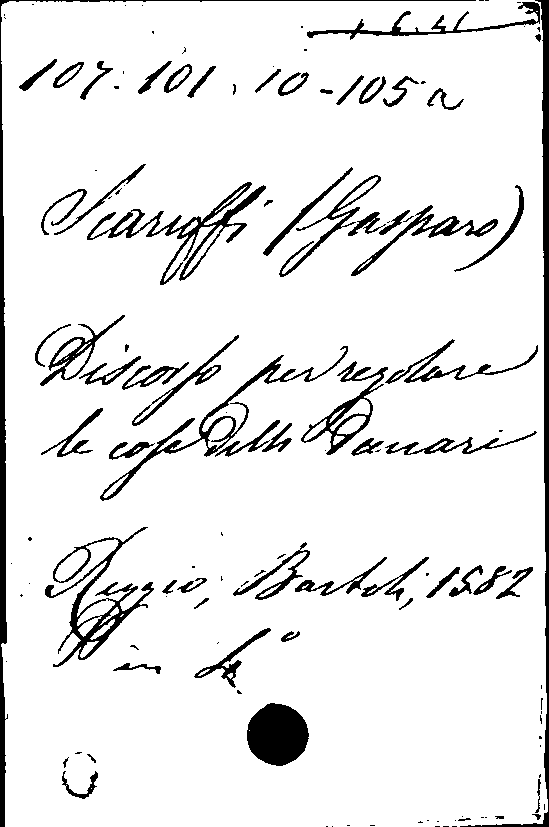 1.6.41
107.101.10-105 a
Scaruffi (Gasparo)
Discorso per regolare
le cose delli Danari
Reggio, Bartoli, 1582
in 4°